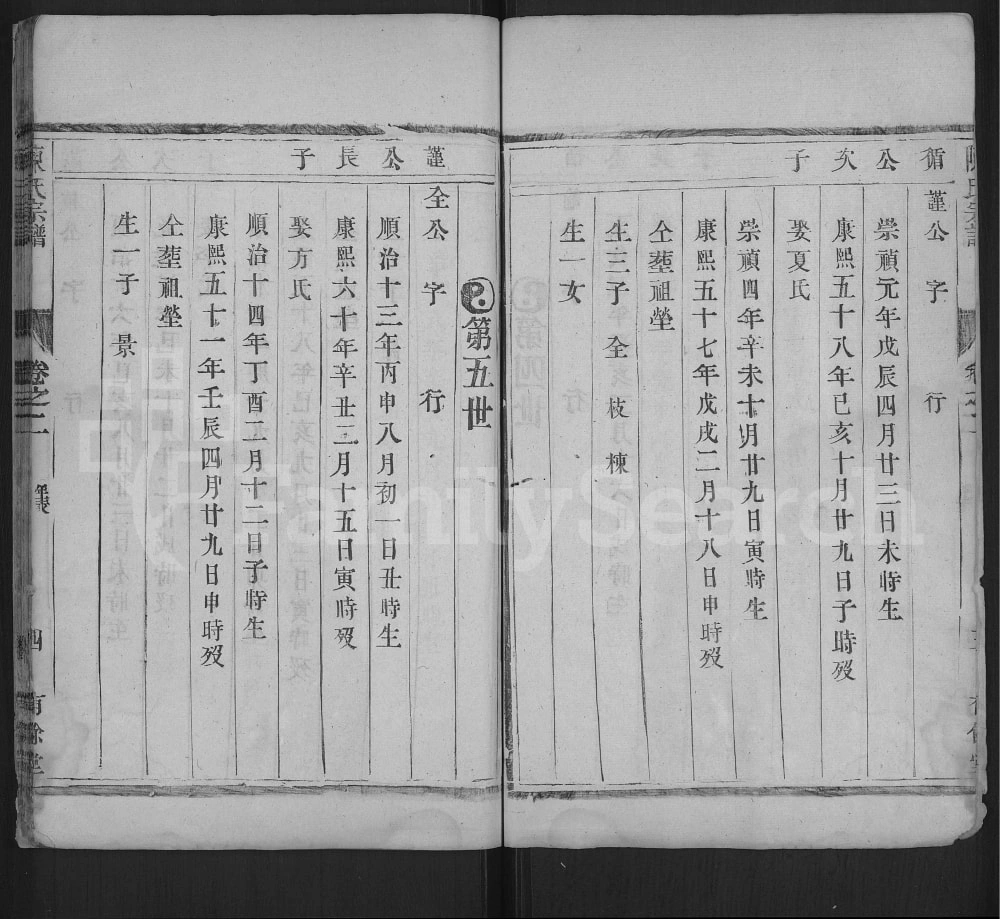 循公次子
謹公 字 行
崇禎元年戊辰四月廿三日未時生
康熙五十八年己亥十月廿九日子時歿
娶夏氏
崇禎四年辛未十月廿九日寅時生
康熙五十七年戊戌二月十八日申時歿
仝塟祖塋
生三子全枝棟
生一女
第五世
謹公長子
全公 字 行
順治十三年丙申八月初一日丑時生
康熙六十年辛丑三月十五日寅時歿
娶方氏
順治十四年丁酉二月十二日子時生
康熙五十一年壬辰四月廿九日申時歿
仝塟祖塋
生一子 景
陳氏宗譜
卷之二
四
有餘堂
FamilySearch